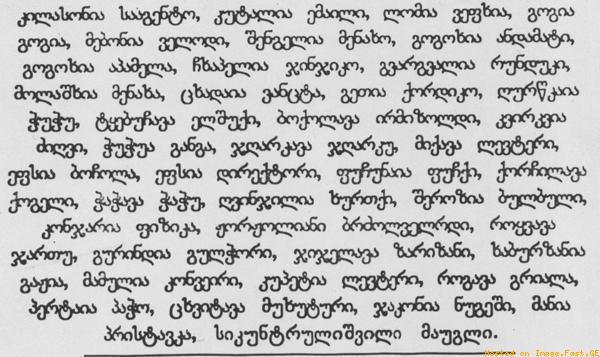 კილასონია სააგენტო, კუტალია ემაილი, ლომია ვეფხია, გოგია
გოგია, მებონია ველოდი, შენგელია მენახო, გოგოხია ანდამატი,
გოგოხია აპამელა, ჩხაპელია ჯინჯიკო, გვარგვალია რუნდუკი,
მოლაშხია მენახა, ცხადაია ვანცტა, გეთია ქორდიკო, ღურწკაია
ჭუჭუ, ტყებუჩავა ელშუქი, ბოქოლავა ირმიზოლდი, კვირკვია
ძიღვი, ჭუჭუა განგა, ჯღარკავა ჯღარკუ, მიქავა ლევტერი,
ეფსია ბოჩოლა, ეფსია დირექტორი, ფუჩუნაია ფუჩქი, ქორჩილავა
ქოგელი, ჭაჭავა ჭაჭუ, ღვინჯილია ხურთქი, შეროზია ბულბული,
კონჯარია ფიზიკა, ჟორჟოლიანი ბრძოლველრდი, როყვავა
ჯართუ, გურინდია გულჭორი, ჯიჯელავა ზარიზანი, საბურზანია
გაჟია, მამულია კონვეირი, კუპეტია ლევტერი, როგავა გრიალა,
პერტაია პაჭო, ცხვიტავა მუხუტური, ჯაკონია ნუგეში, მანია
პრისტავკა, სიკუნტრულიშვილი მაუგლი.
Hosted on Image.Fast.GE